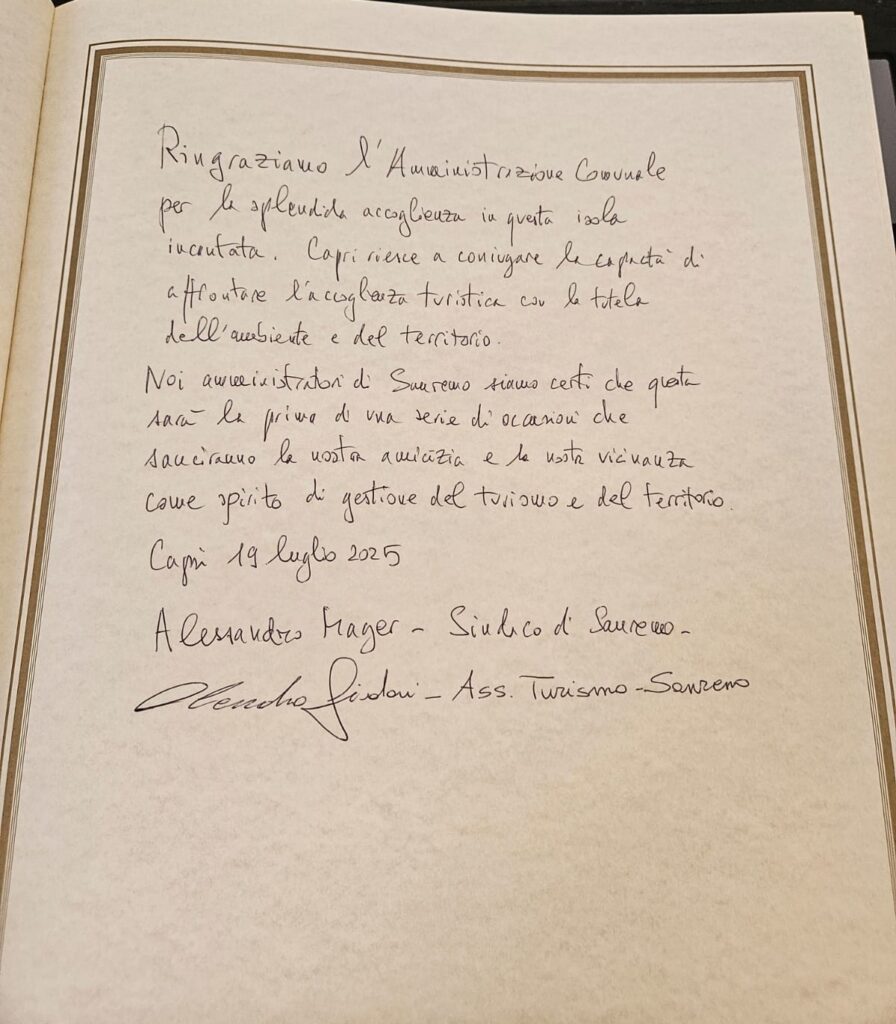 Ringraziamo l'Amministrazione Comunale
per la splendida accoglienza in questa isola
incantata. Capri riesce a coniugare la capacità di
affrontare l'accoglienza turistica con la tutela
dell'ambiente e del territorio.
Noi amministratori di Sanremo siamo certi che questa
sarà la prima di una serie di occasioni che
sanciranno la nostra amicizia e la nostra vicinanza
come spirito di gestione del turismo e del territorio.
Capri 19 luglio 2025
Alessandro Mager - Sindaco di Sanremo -
- Ass. Turismo - Sanremo